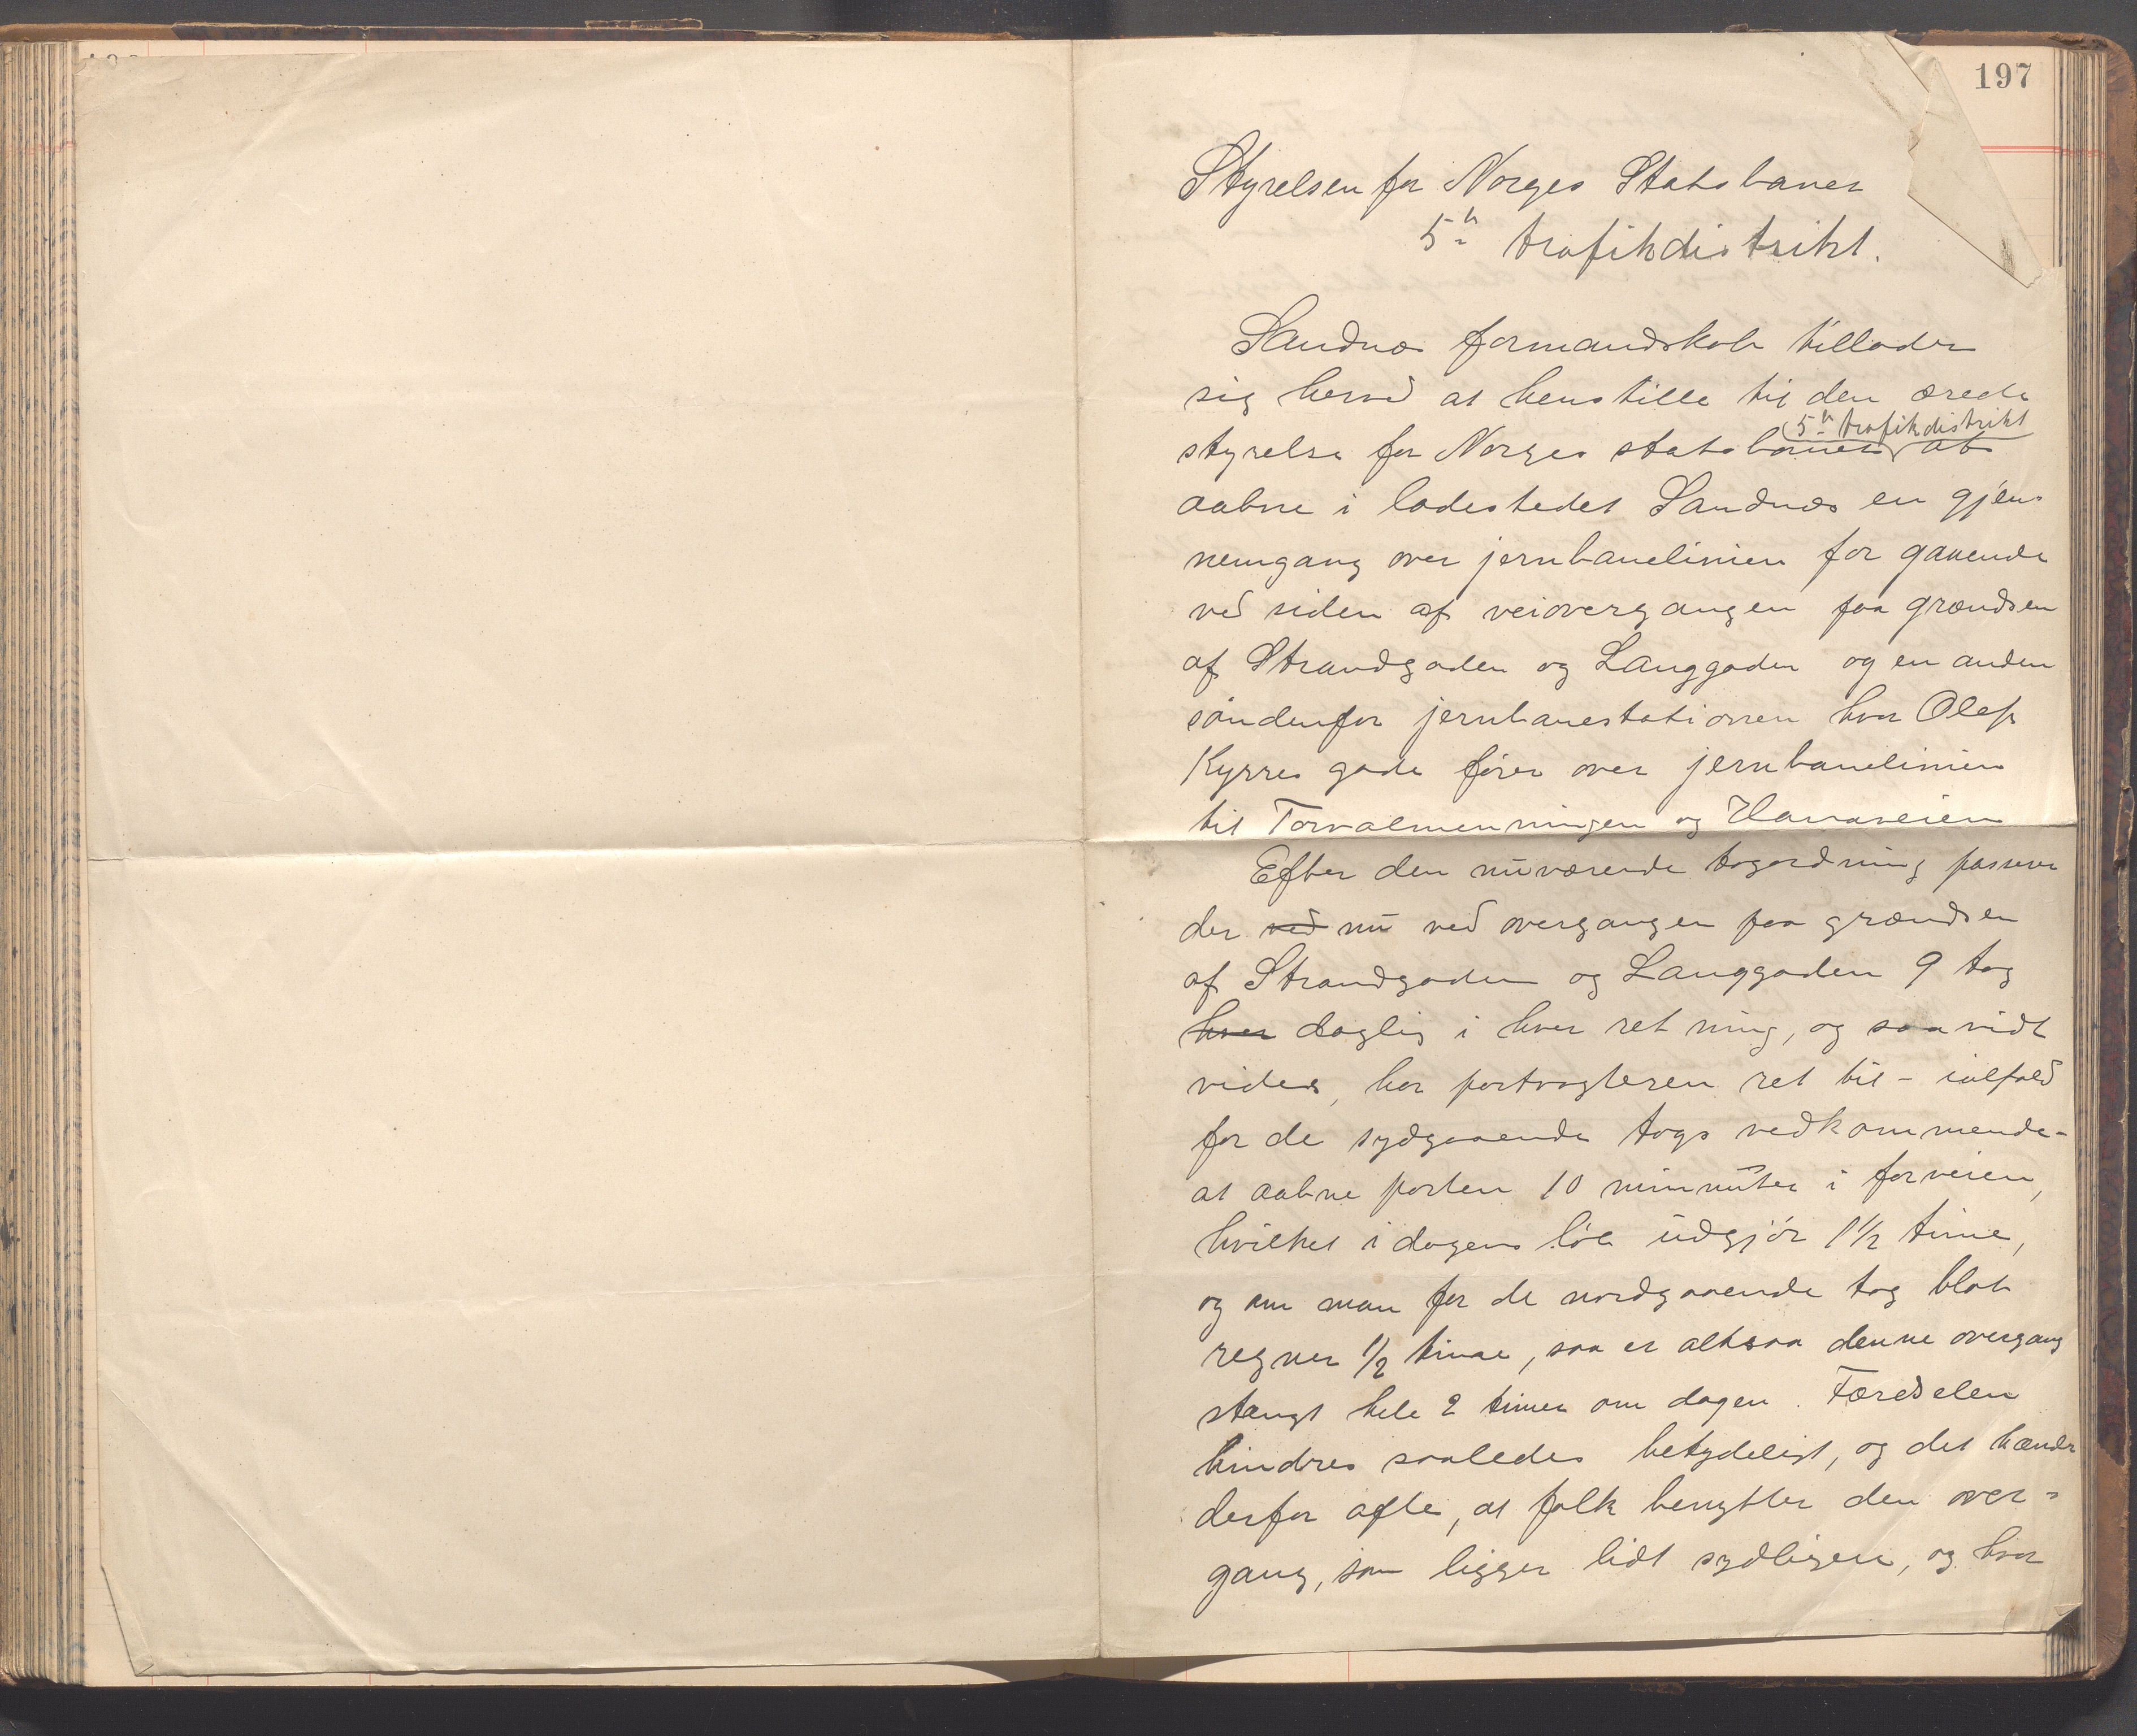 197
Styrelsen for Norges Statsbaner
5te trafikdistrikt.
Sandnæs formandskab tillader
sig herved at henstille til den ærede
5te trafikdistrikt
styrelse for Norges statsbaner at
aabne i ladestedet Sandnæs en gjen-
nemgang over jernbanelinien for gaaende
ved siden af veiovergangen paa grændsen
af Strandgaden og Langgaden og en anden
søndenfor jernbanestationen hvor Olaf
Kyrres gade fører over jernbanelinien
til Torvalmenningen og Hanaveien
Efter den nuværende togordning passerer
der ved nu ved overgangen paa grændsen
af Strandgaden og Langgaden 9 tog
hver daglig i hver retning, og saavidt
vides, har portvagteren ret til - ialfald
for de sydgaaende togs vedkommende -
at aabne porten 10 minnuter i forveien,
hvilket i dagens løb udgjør 1 1/2 time,
og om man for de nordgaaende tog blot
regner 1/2 time, saa er altsaa denne overgang
stængt hele 2 timer om dagen. Færdselen
hindres saaledes betydeligt, og det hænder
derfor ofte, at folk benytter den over-
gang, som ligger lidt sydligere, og hvor